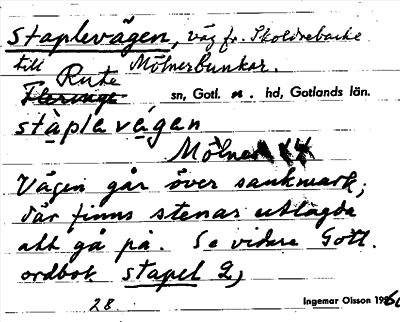 staplevägen, väg fr. Skoldrebacke
till Mölnerbunkar.
Rute
Fleringe sn, Gotl. n. hd, Gotlands län.
stàplavägan
Mölner
Vägen går över sankmark;
där finns stenar utlagda
att gå på. Se vidare Gotl.
ordbok stapel 2,
28. Ingemar Olsson 1960